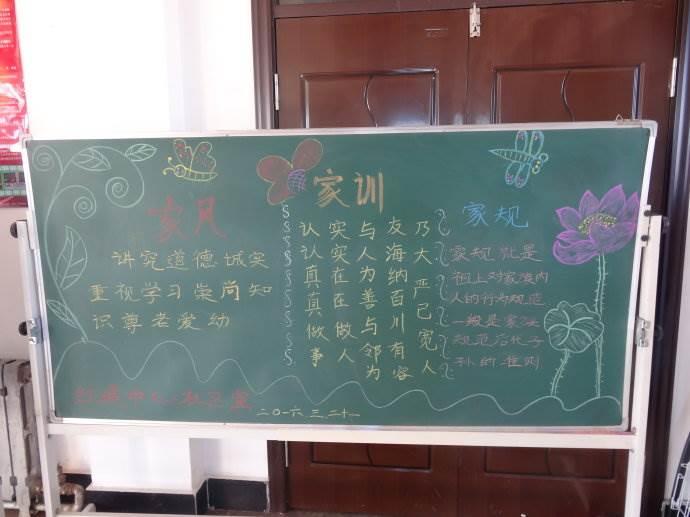 家风
讲究道德诚实
重视学习崇尚知
识尊老爱幼
家训
认认真真做事
实实在在做人
与人为善与邻为
友海纳百川有容
乃大严己宽人
家规
家规就是
祖上对家族内
人的行为规范
一般是家族
规范后代子
孙的准则
二〇一六三.二十一